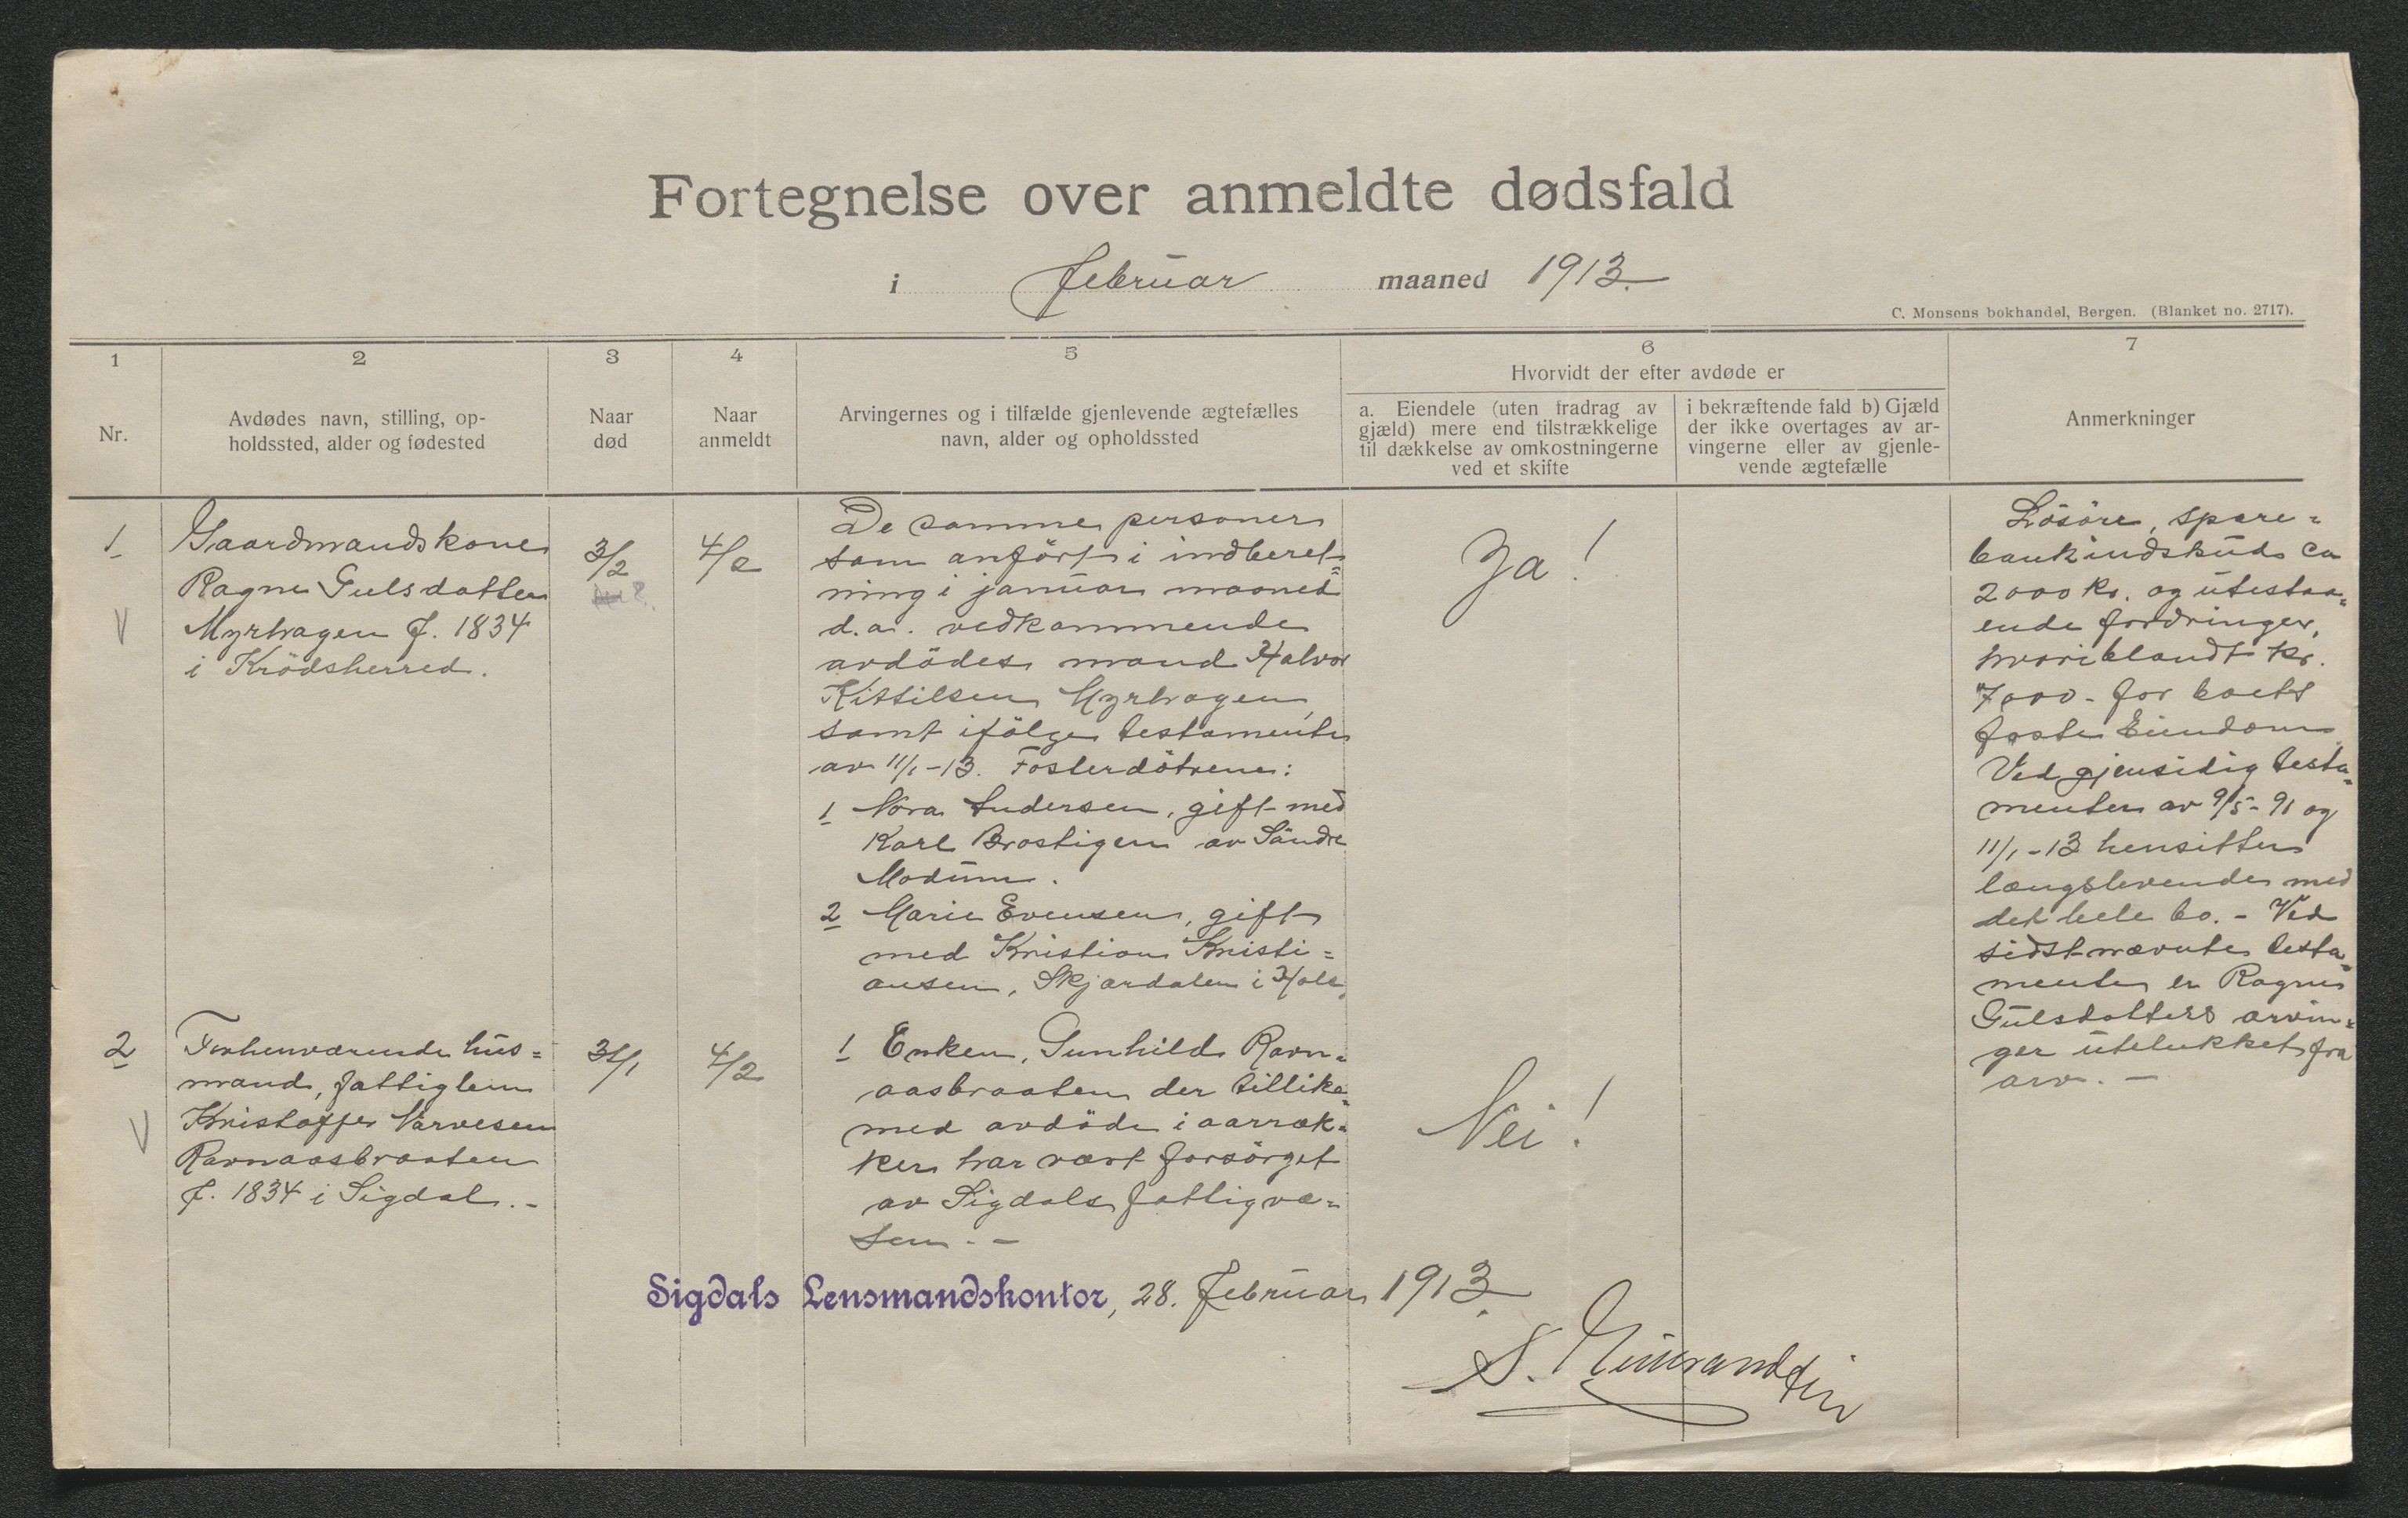 Fortegnelse over anmeldte dødsfald
i Februar maaned 1913.
C. Monsens bokhandel, Bergen. (Blanket no. 2717).
1
2
3
4
5
6
7
Nr.
Avdødes navn, stilling, op-
holdssted, alder og fødested
Naar
død
Naar
anmeldt
Arvingernes og i tilfælde gjenlevende ægtefælles
navn, alder og opholdssted
Hvorvidt der efter avdøde er
a. Eiendele (uten fradrag av
gjæld) mere end tilstrækkelige
til dækkelse av omkostningerne
ved et skifte
i bekræftende fald b) Gjæld
der ikke overtages av ar-
vingerne eller av gjenle-
vende ægtefælle
Anmerkninger
1
Gaardmandskone
Ragne Gulsdatter
Myrhagen f. 1834
i Krödsherred.
3/2
4/2
De samme personer
som anfört i indberet=
ning i januar maaned
d.a. vedkommende
avdödes mand Halvor
Kittilsen Myrhagen,
samt ifölge testamente
av 11/1-13. Fosterdötrene:
1 Nora Andersen, gift med
Karl Brostigen av Söndre
Modum.
2 Marie Evensen, gift
med Kristian Kristi=
ansen, Skjardalen i Hole.
Ja!
Lösöre, spare=
bankindskud ca
2000 kr. og utestaa=
ende fordringer,
hvoriblandt kr.
7000- for boets
faste Eiendom.
Ved gjensidig testa=
menter av 9/5-91 og
11/1-13 hensitter
længstlevende med
det hele bo. - Ved
sidstnævnte testa=
mente er Ragne
Gulsdatters arvin=
ger utelukket fra
arv. -
2
Forhenværende hus=
mand, fattiglem
Kristoffer Narvesen
Ravnaasbraaten
f. 1834 i Sigdal. -
31/1
4/2
1 Enken, Gunhild Ravn=
aasbraaten der tillike=
med avdöde i aarræk=
ker har vært forsörget
av Sigdals fattigvæ=
sen. -
Nei!
Sigdals Lensmandskontor, 28. Februar 1913.